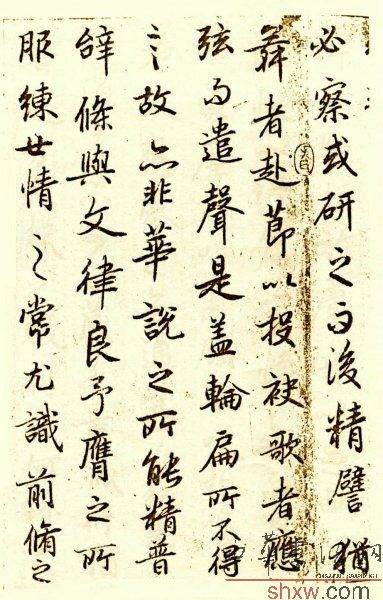 必察或研之而後精譬猶
舞者赴節以投袂歌者應
弦而遣聲是盖輪扁所不得
言故亦非華說之所能精普
辭條與文律良予膺之所
服練世情之常尤識前脩之
shxw.com